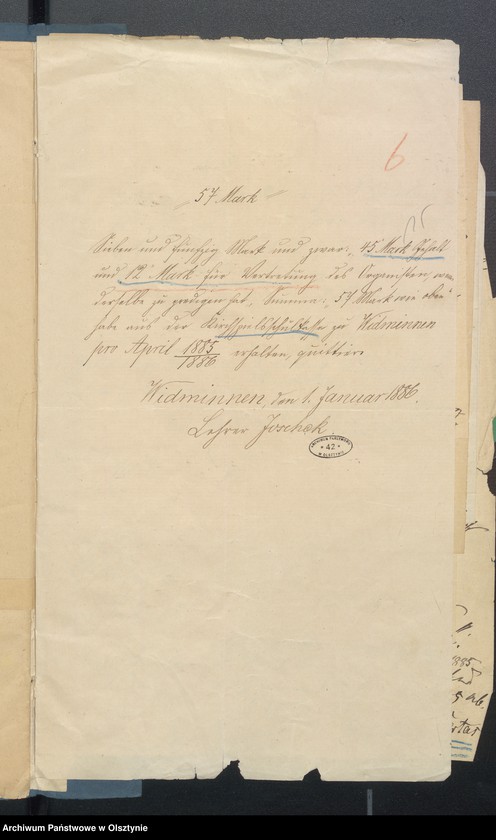 6
57 Mark
Sieben und fünfzig Mark und zwar: „45 Mark Gehalt
und „12" Mark für Vertretung des Organisten, wenn
derselbe zu predigen hat, Summa: „57 Mark wie oben"
habe aus der Kirchspielsschulkasse zu Widminnen
pro April 1885/1886 erhalten, quittire
Widminnen, den 1. Januar 1886.
Lehrer Joschek.
ARCHIWUM PAŃSTWOWE
* 42 *
W OLSZTYNIE
1885
Archiwum Państwowe w Olsztynie